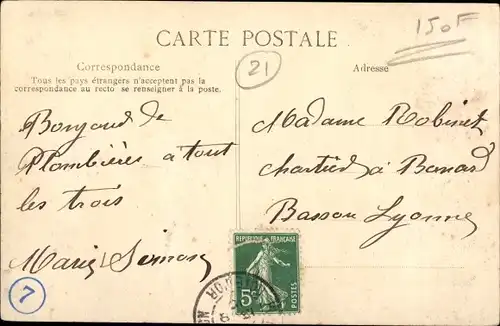 CARTE POSTALE
150F
21
Correspondance
Tous les pays étrangers n'acceptent pas la
correspondance au recto se renseigner à la poste.
Adresse
Bonjour de
Plombières a tout
les trois
Marie Simon
7
Madame Robinet
à
Bassou Lyonne
REPUBLIQUE FRANÇAISE
5c
POSTES